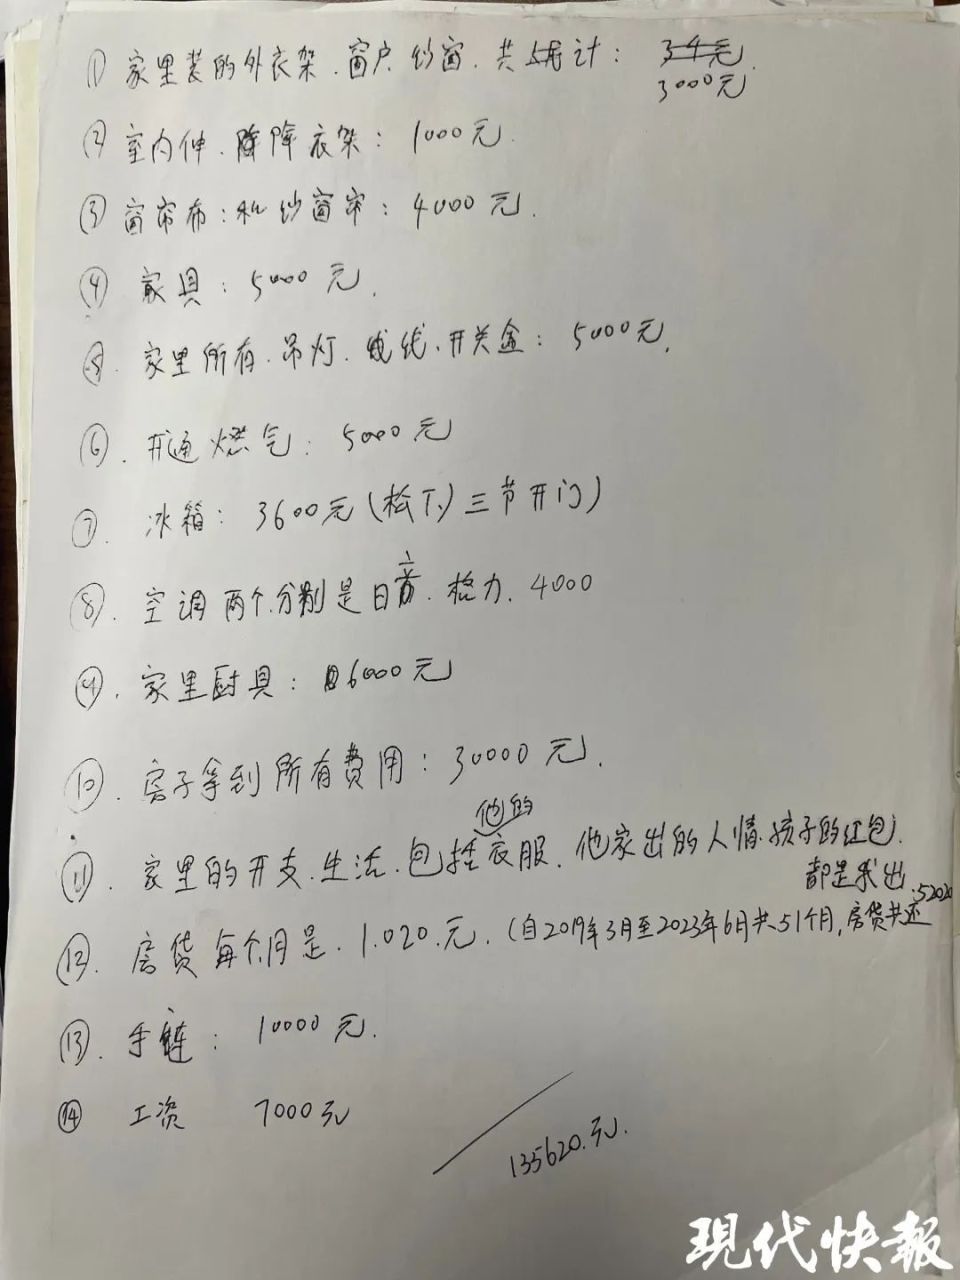 ① 家里装的外衣架.窗户.纱窗.共统计:
3000元
② 室内伸.降降衣架:1000元.
③ 窗帘布:和纱窗帘:4000元.
④ 家具:5000元.
⑤. 家里所有.吊灯.线.开关盒:5000元.
⑥. 开通燃气:5000元
⑦. 冰箱:3600元(松下)三节开门)
⑧. 空调两个.分别是日音.格力.4000
⑨. 家里厨具:6000元
⑩. 房子拿到所有费用:30000元.
他的
⑪. 家里的开支.生活.包括衣服.他家出的人情.孩子的红包.
都是我出.
⑫. 房贷每个月是.1.020.元.(自2019年3月至2023年6月共51个月,房贷共还52020
⑬. 手链:10000元.
⑭ 工资 7000元
135620.元.
现代快報